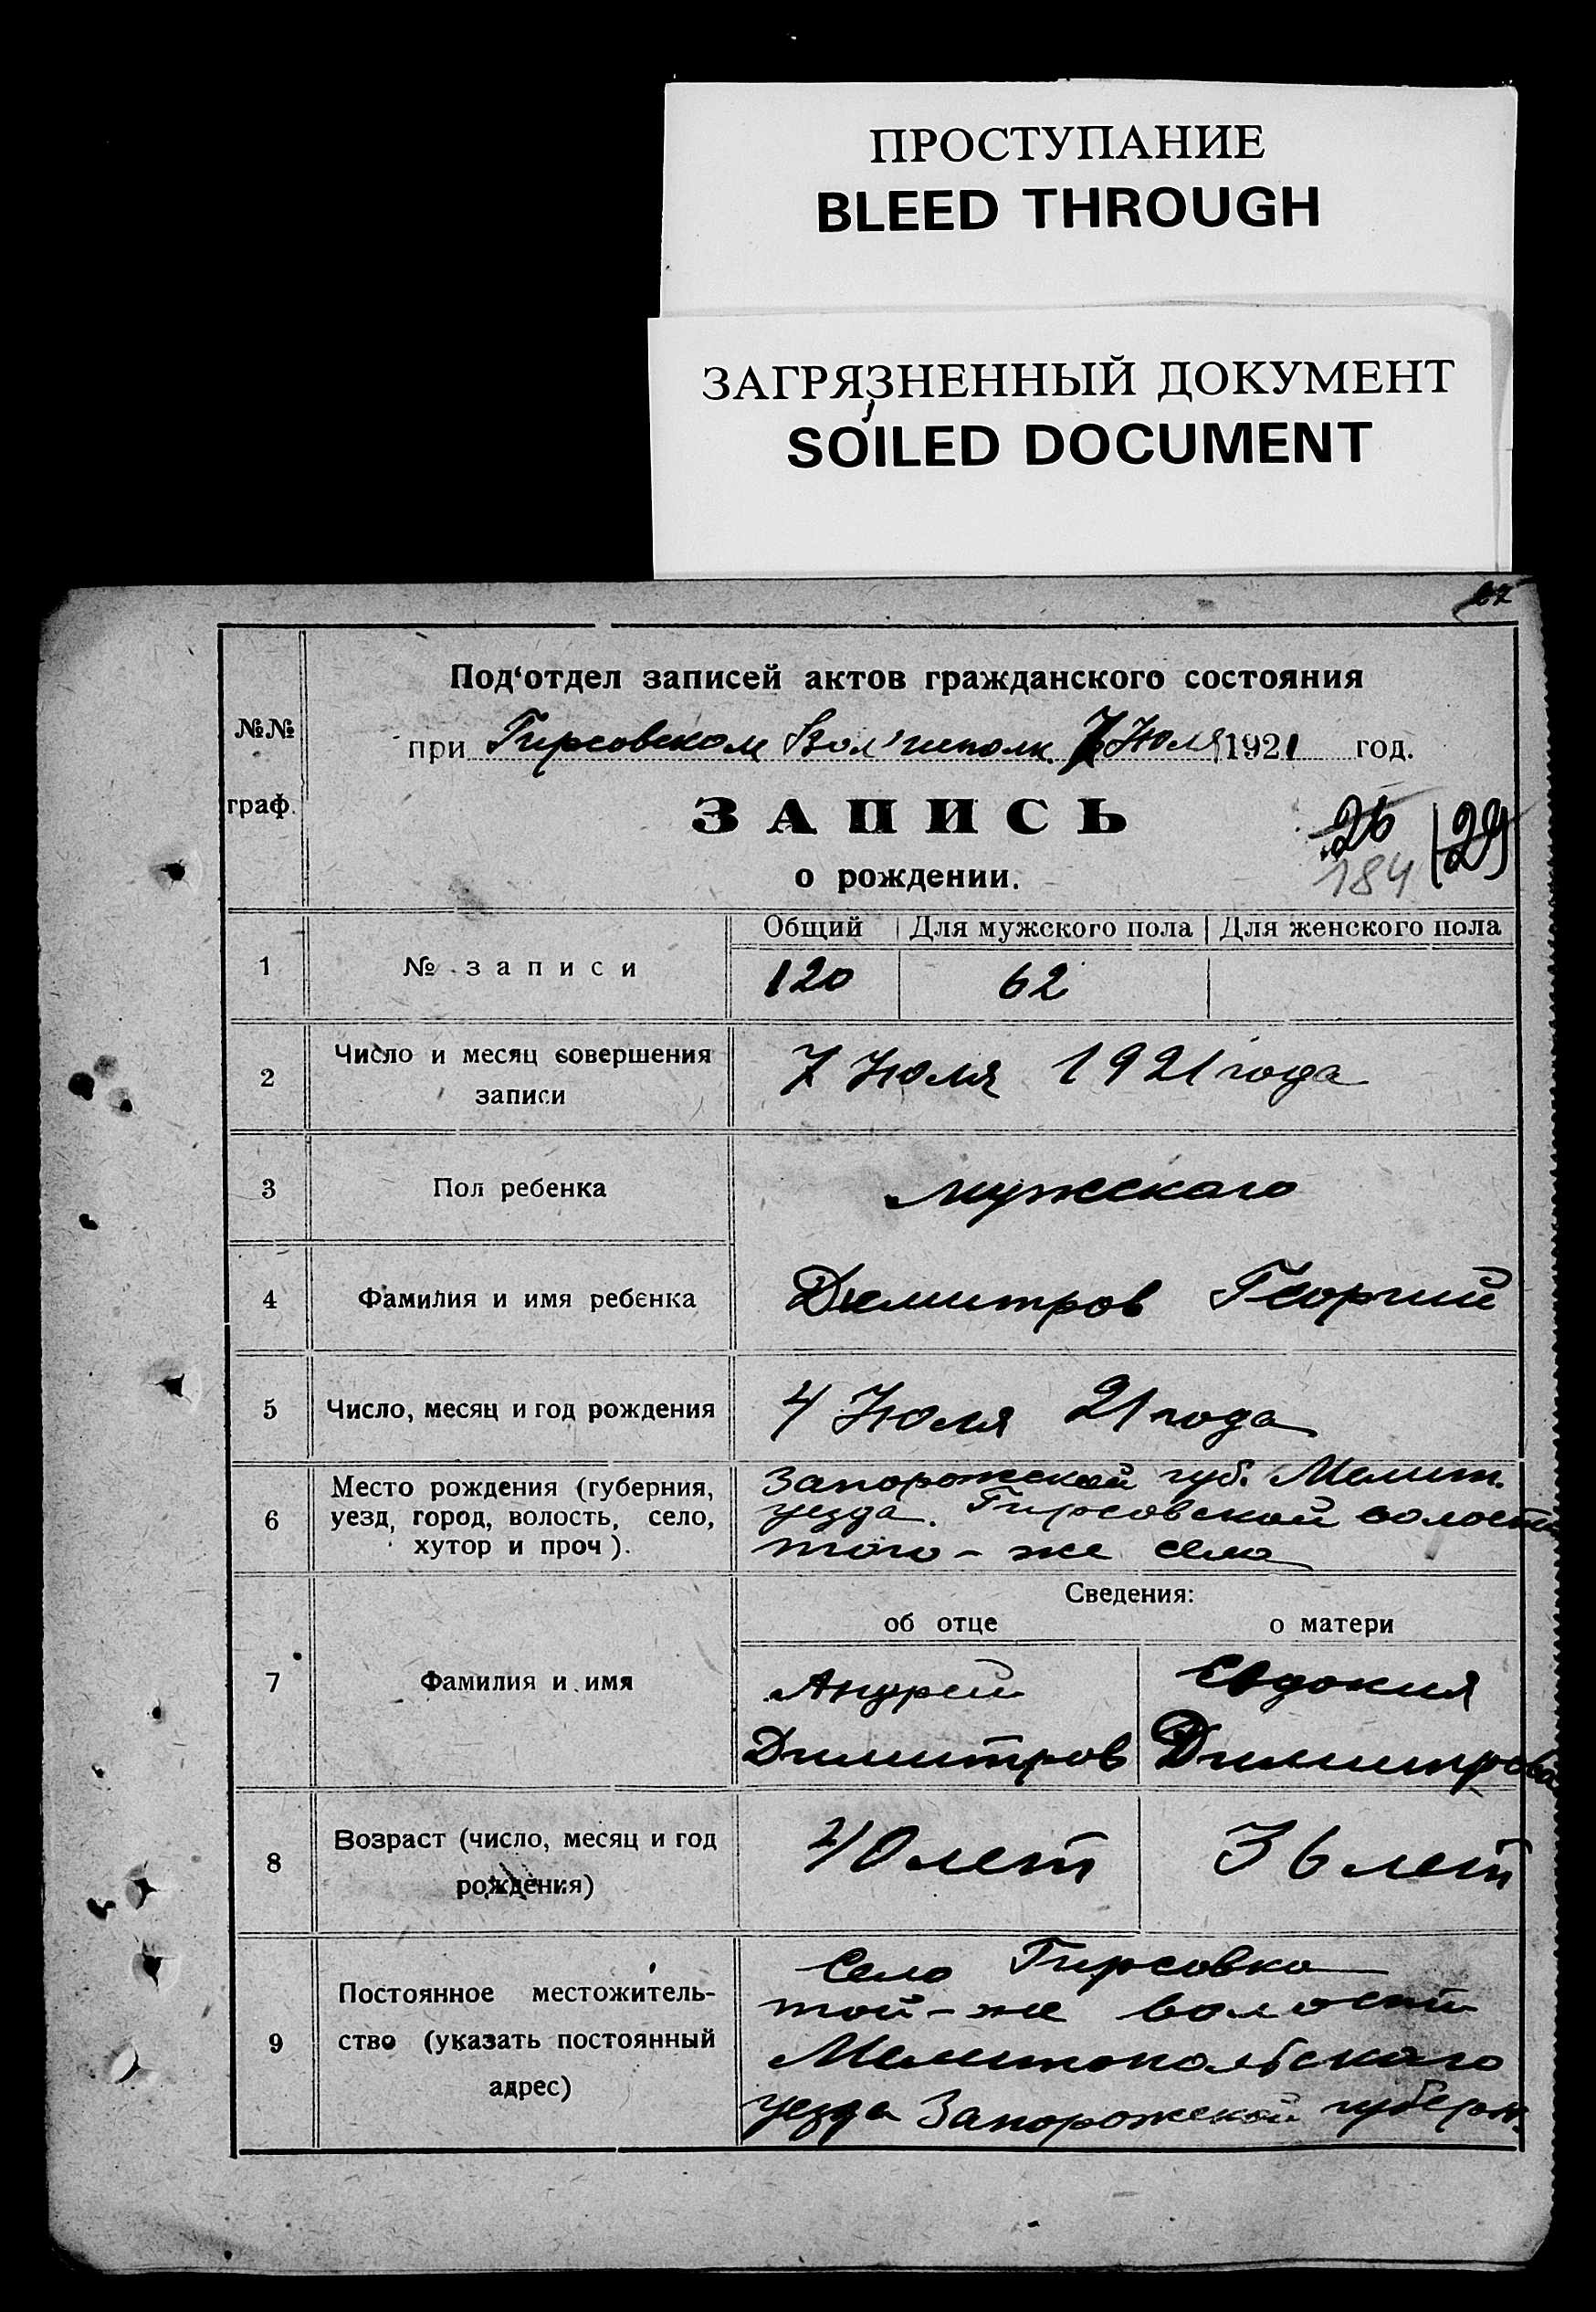 ПРОСТУПАНИЕ
BLEED THROUGH
ЗАГРЯЗНЕННЫЙ ДОКУМЕНТ
SOILED DOCUMENT
27
Под‘отдел записей актов гражданского состояния
№№
при Гирсовском Вол'исполк. 7 Июля 1921 год.
граф.
ЗАПИСЬ
26 29
184
о рождении.
Общий Для мужского пола Для женского пола
1 № записи 120 62
2 Число и месяц совершения
записи
7 Июля 1921 года
3 Пол ребенка мужскаго
4 Фамилия и имя ребенка Димитров Георгий
5 Число, месяц и год рождения 4 Июля 21 года
6 Место рождения (губерния,
уезд, город, волость, село,
хутор и проч).
Запорожской губ. Мелит.
уезда. Гирсовской волости
того-же села
Сведения:
об отце о матери
7 Фамилия и имя
Андрей Евдокия
Димитров Димитрова
8 Возраст (число, месяц и год
рождения)
40 лет 36 лет
9 Постоянное местожитель-
ство (указать постоянный
адрес)
Село Гирсовка
той-же волости
Мелитопольскаго
уезда Запорожской губерн.